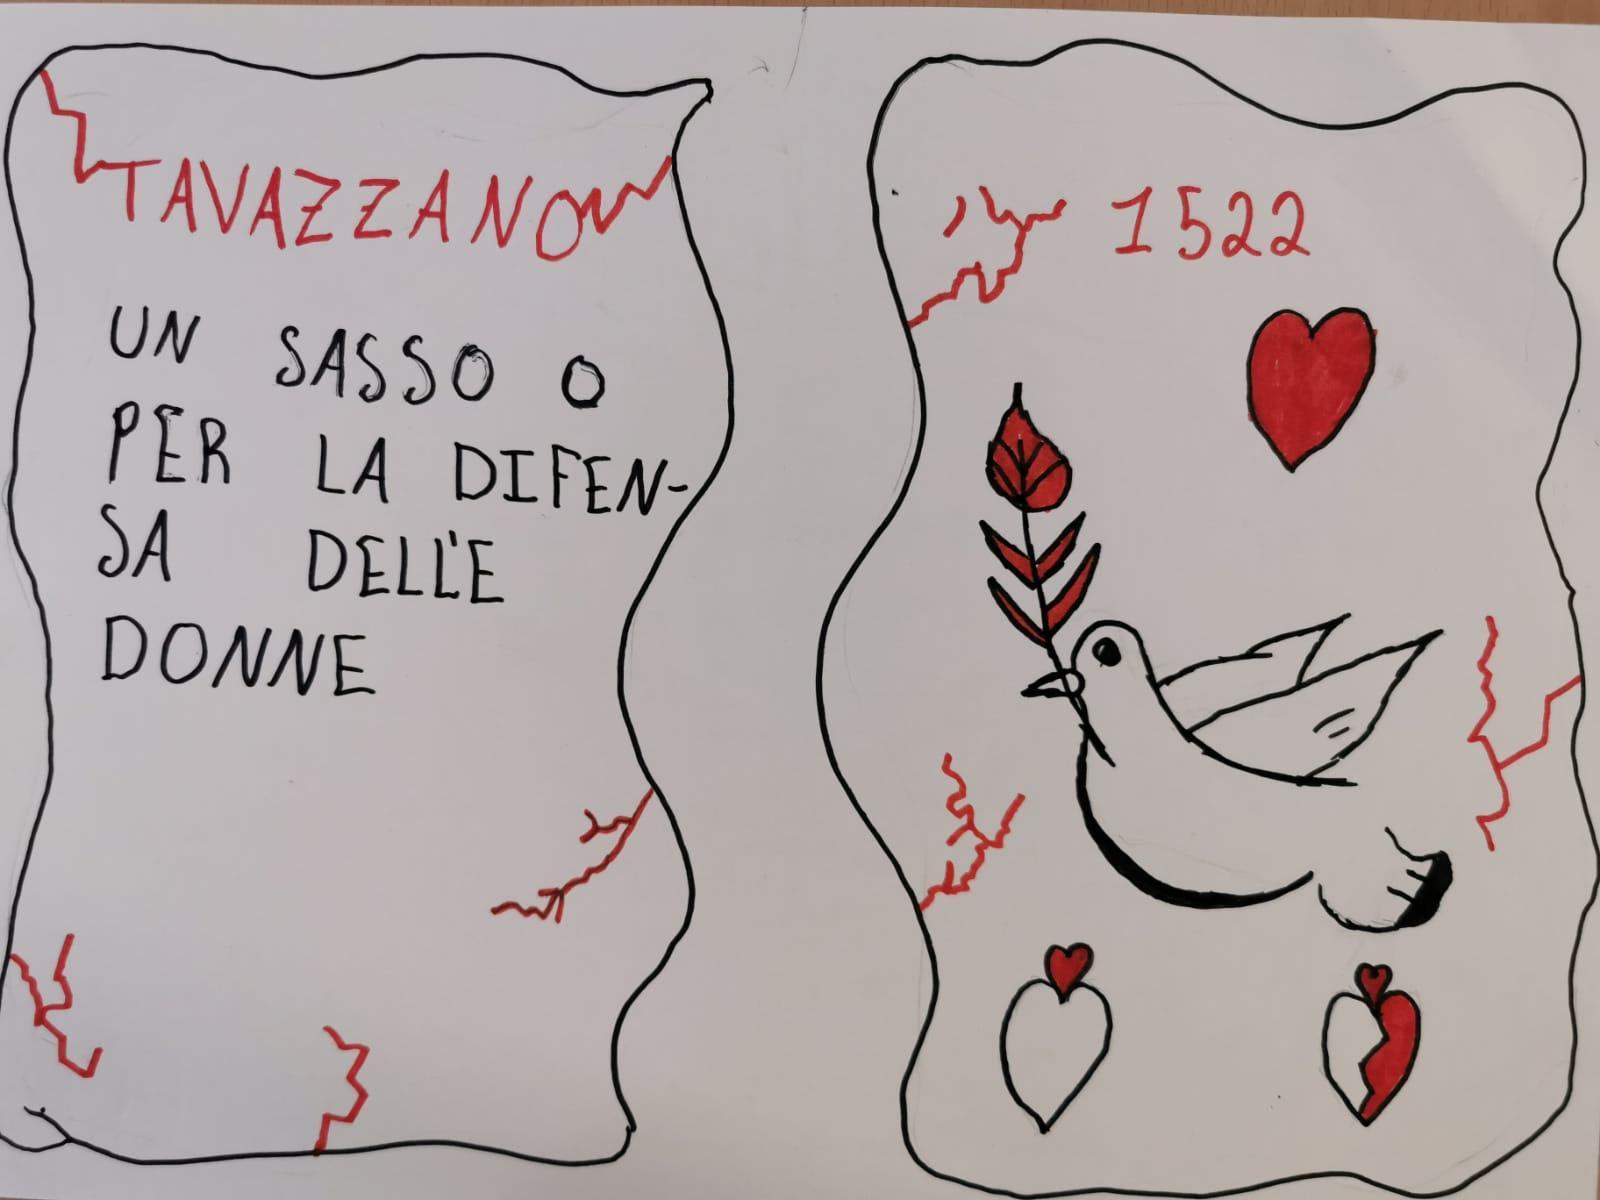 TAVAZZANO
UN SASSO O
PER LA DIFEN-
SA DELL'E
DONNE
1522